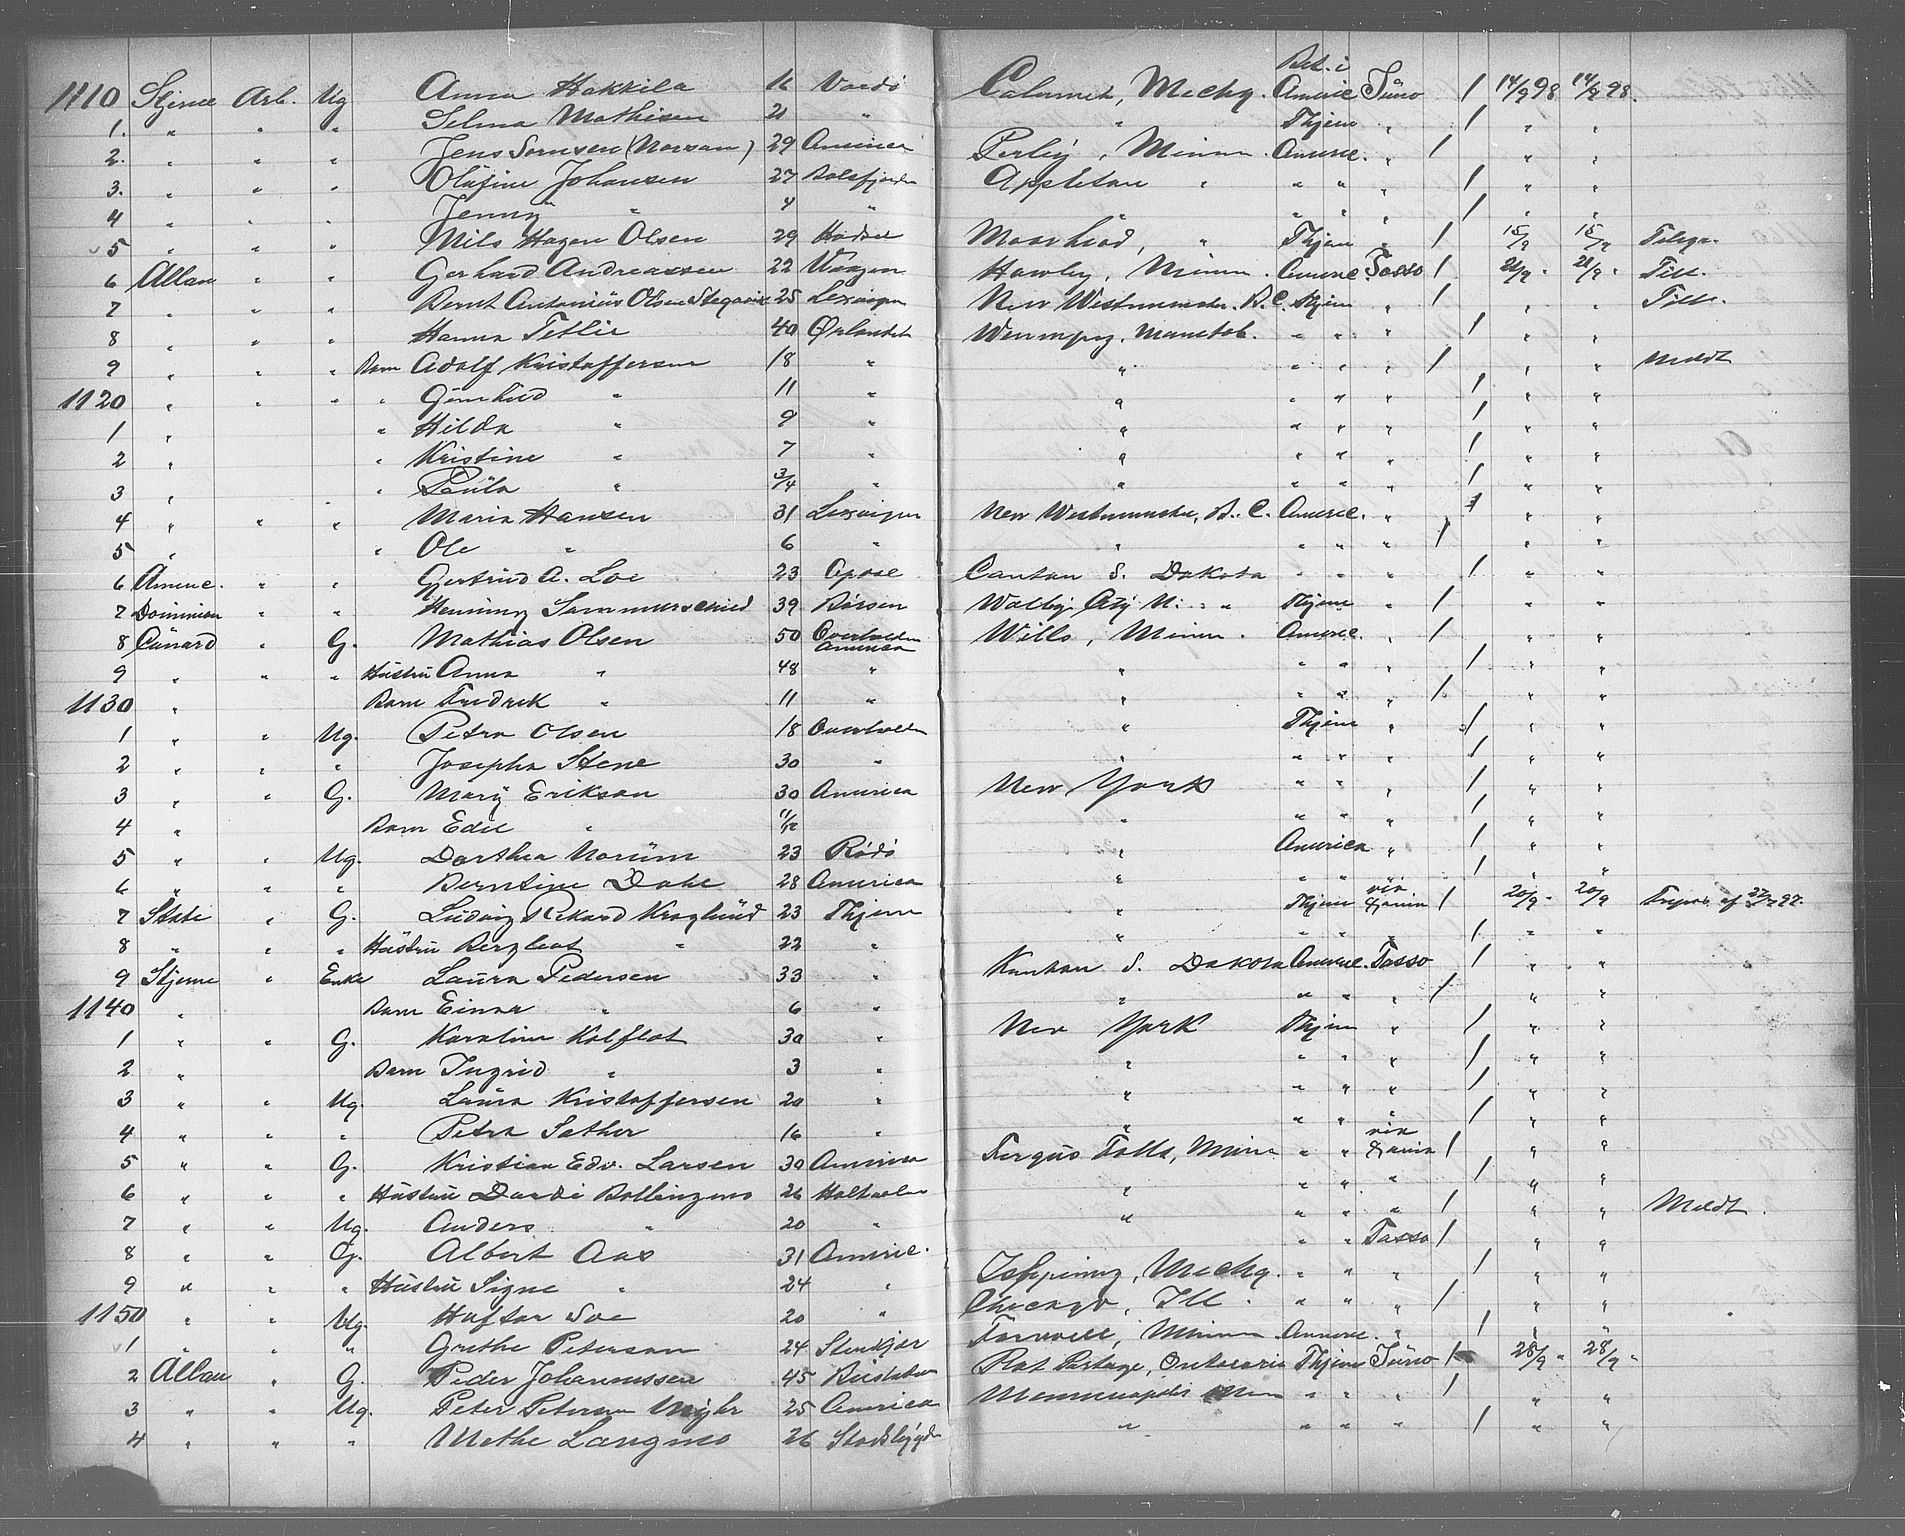 Bet. i
1110 Stjerne Arb. Ug Anna Hakkila 16 Vardö Calumet, Mechg. Americ Juno / 14/9 98 14/9 98.
1. " " " Selma Mathisen 21 " " Thjem " / " "
2. " " " Jens Sornsen (Norsan) 29 America Perley, Minn Americ. " / " "
3. " " " Olufine Johansen 27 Balsfjorden Appleton " " " " / " "
4 " " " Jenny " 4 " " " " / " "
5 " " " Nils Hagen Olsen 29 Hadsel Moorhead, " Thjem " / 15/9 15/9
6 Allan " " Gerhard Andreassen 22 Vaagen Hawley, Minn. Americ. Tasso / 21/9 " 21/9 " Till.
7 " " " Bernt Antonius Olsen Stegavik 25 Lexvigen New Westminster. B.C. Thjem " / " " Till.
8 " " " Hanna Tetlie 40 Ørlandet Winnipeg, Manitob. " " " / " "
9 " " " Barn Adolf Kristoffersen 18 " " " " " / " " Meldt
1120 " " " " Gunhild " 11 " " " " " / " "
1 " " Hilda " 9 " " " " " / " "
2 " " Kristine " 7 " " " " " / " "
3 " " Paula " 3/4 " " " " " / " "
4 " " " Maria Hansen 31 Lexvigen New Westminster, B. C. Americ. " / " "
5 " " Ole " 6 " " " " " / " "
6 Americ. " " Gjertrud A. Loe 23 Opdal Canton S. Dakota " " " / " "
7 Dominion " " Henning Sommerschield 39 Börsen City N. " " Thjem " / " "
8 Cunard " G. Mathias Olsen 50 Overhalden America Wills, Minn. Americ. " / " "
9 " " " Hustru Anna " 48 " " " " " / " "
1130 " Barn Fredrik " 11 " " " " " / " "
1 " " Ug. Petra Olsen 18 Overhalden " Thjem " / " "
2 " " " Josepha Stene 30 " " " " " / " "
3 " " G. Mary Erikson 30 America New York " " " / " "
4 " Barn Edel " 11/12 " " " " / " "
5 " " Ug. Dorthea Norum 23 Rödö " America " / " "
6 " " " Berntine Dahl 28 America " " " " / " "
7 State " G. Ludvig Rikard Kroglund 23 Thjem " Thjem via / 20/9 " 20/9 af 97.
8 " " " Hustru Bergljot " 22 " " " " " / " "
9 Stjerne " Enke Laura Pedersen 33 " Kanton S. Dakota Americ. Tasso / " "
1140 " Barn Einar " 6 " " " " " / " "
1 " " G. Karoline Kolflot 30 " New York Thjem " / " "
2 " Barn Ingrid " 3 " " " " " / " "
3 " " Ug. Laura Kristoffersen 20 " " " " " / " "
4 " " " Petra Sather 16 " " " " " / " "
5 " " G. Kristian Edv. Larsen 30 America Fergus Falls, Minn " " via / " "
6 " " " Hustru Bollingmo 26 Holtaalen " " " " / " "
7 " " Ug. Anders " 20 " " " " " / " " Meldt.
8 " " G. Albert Aas 31 Americ. " " Tasso / " "
9 " " " Hustru Signe " 24 " Ishpiming, Mechg. " " " / " "
1150 " " Ug. Haftor Soe 20 " Chicago, Ill. " " " / " "
1 " " " Grethe Peterson 24 Stenkjær Farwell, Minn Americ. " / " "
2 Allan " G. Peder Johannssen 45 Rat Portage, Onterario Thjem Juno / 28/9 " 28/9 "
3 " " Ug. Peter Petersen 25 America Menneapolis Men " " " / " "
4 " " " Methe Langmo 26 Stodsbygden " " " " / " "